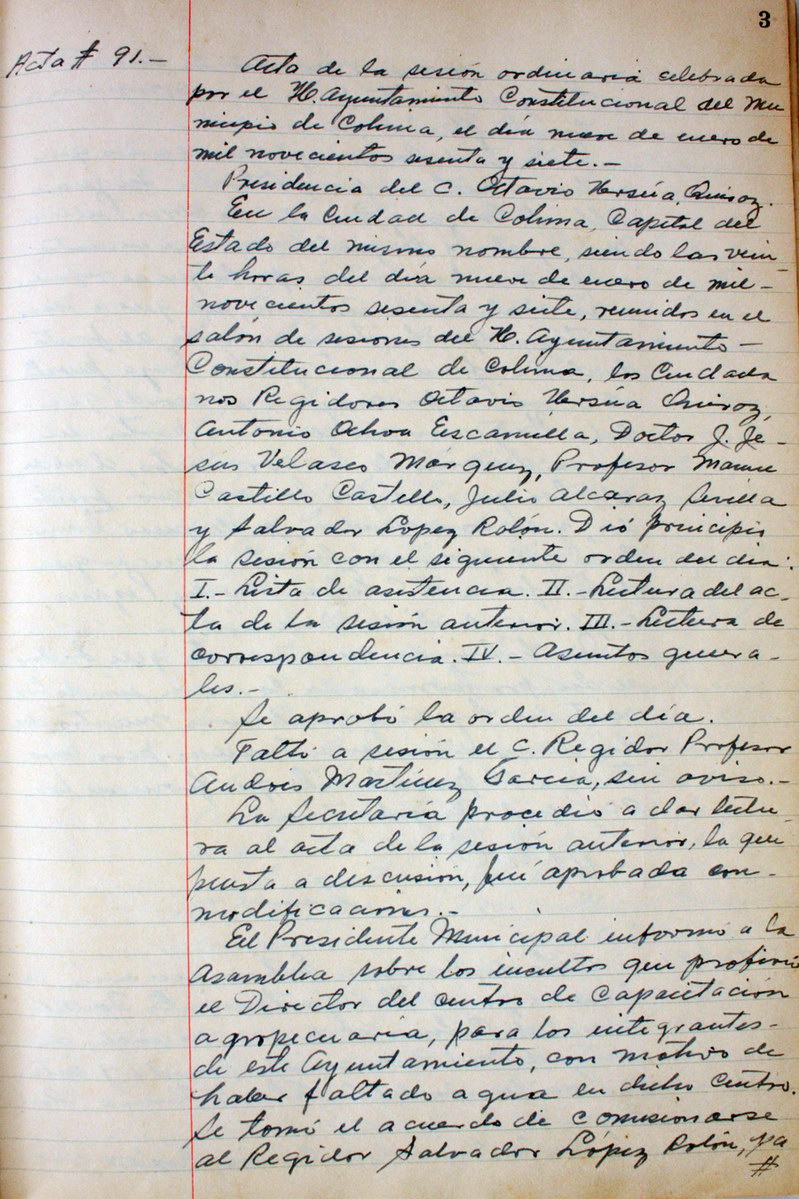 3
Acta # 91.-
Acta de la sesión ordinaria celebrada
por el H. Ayuntamiento Constitucional del Mu
nicipio de Colima, el día nueve de enero de
mil novecientos sesenta y siete.-
Presidencia del C. Octavio Ursúa Quiroz.
En la Ciudad de Colima, Capital del
Estado del mismo nombre, siendo las vein-
te horas del día nueve de enero de mil-
novecientos sesenta y siete, reunidos en el
salón de sesiones del H. Ayuntamiento-
Constitucional de Colima, los Ciudada
nos Regidores Octavio Ursúa Quiroz,
Antonio Ochoa Escamilla, Doctor J. Je-
sús Velasco Márquez, Profesor Manuel
Castillo Castello, Julio Alcaraz Sevilla
y Salvador Lopez Rolón. Dió principio
la sesión con el siguiente orden del dia:
I.- Lista de asistencia. II.- Lectura del ac-
ta de la sesión anterior. III.- Lectura de
correspondencia. IV.- Asuntos genera-
les.-
Se aprobó la orden del día.
Faltó a sesión el C. Regidor Profesor
Andrés Martínez García, sin aviso.-
La Secretaría procedió a dar lectu-
ra al acta de la sesión anterior, la que
puesta a discusión, fué aprobada con-
modificaciones.-
El Presidente Municipal informó a la
Asamblea sobre los incultos que profirió
el Director del centro de Capacitación
agropecuaria, para los integrantes-
de este Ayuntamiento, con motivo de
haber faltado agua en dicho Centro.
Se tomó el acuerdo de comisionarse
al Regidor Salvador López Rolón, pa
#